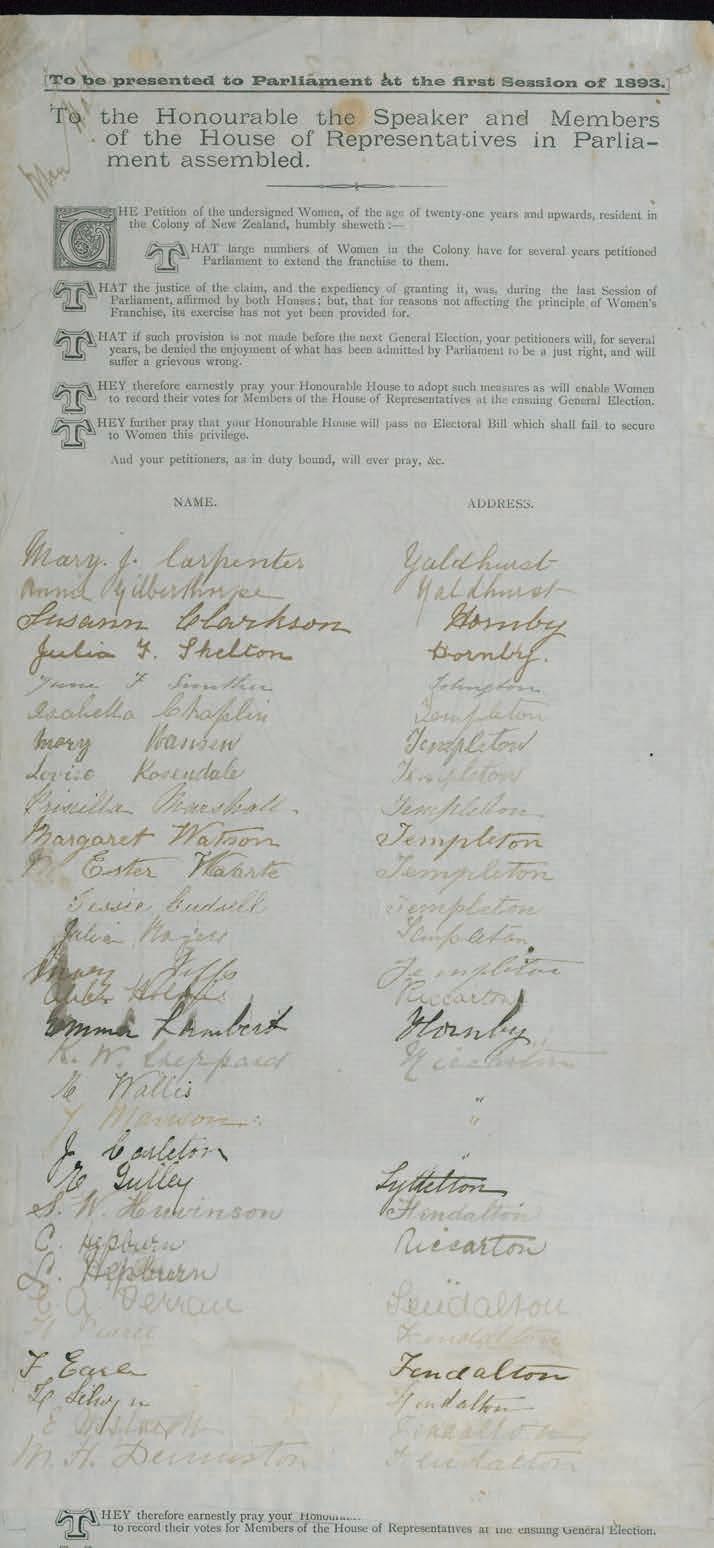 [To be presented to Parliament at the first Session of 1893.]
To the Honourable the Speaker and Members
of the House of Representatives in Parlia-
ment assembled.
THE Petition of the undersigned Women, of the age of twenty-one years and upwards, resident in
the Colony of New Zealand, humbly sheweth:—
THAT large numbers of Women in the Colony have for several years petitioned
Parliament to extend the franchise to them.
THAT the justice of the claim, and the expediency of granting it, was, during the last Session of
Parliament, affirmed by both Houses; but, that for reasons not affecting the principle of Women's
Franchise, its exercise has not yet been provided for.
THAT if such provision is not made before the next General Election, your petitioners will, for several
years, be denied the enjoyment of what has been admitted by Parliament to be a just right, and will
suffer a grievous wrong.
THEY therefore earnestly pray your Honourable House to adopt such measures as will enable Women
to record their votes for Members of the House of Representatives at the ensuing General Election.
THEY further pray that your Honourable House will pass no Electoral Bill which shall fail to secure
to Women this privilege.
And your petitioners, as in duty bound, will ever pray, &c.
NAME. ADDRESS.
Mary. J. Carpenter Yaldhurst
Annie Gilberthorpe Yaldhurst
Susann Clarkson Hornby
Julia F. Shelton Hornby.
Jane F
Isabella Chaplin Templeton
Mary Hansen Templeton
Louise Rosendale Templeton
Priscilla Marshall. Templeton
Margaret Watson Templeton
M Ester Templeton
Jessie Templeton
Julia Templeton
Templeton
Riccarton
Emma Lambert Hornby
K. W. Sheppard Riccarton
Wallis "
Manson "
J Carleton "
Gulley Lyttelton
S. W. Fendalton
C. Hepburn Riccarton
L. Hepburn "
C A Perrau Fendalton
Fendalton
F Earle Fendalton
Selwyn Fendalton
E Fendalton
M. H. Fendalton
THEY therefore earnestly pray your
to record their votes for Members of the House of Representatives at the ensuing General Election.